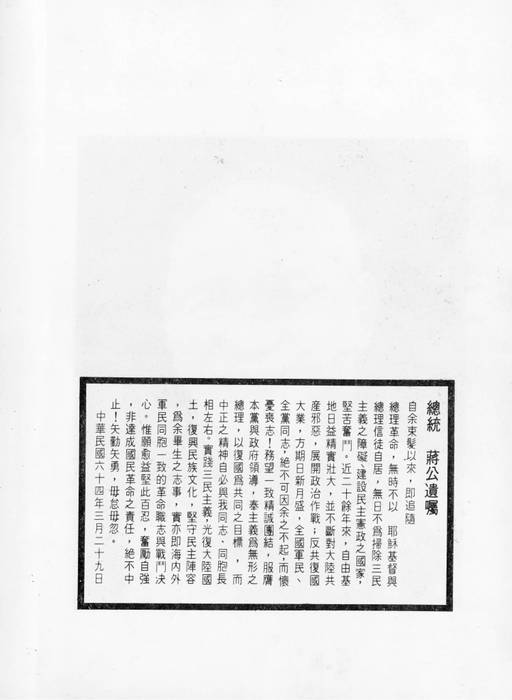 總統　蔣公遺囑
自余束髮以來，即追隨
總理革命，無時不以　耶穌基督與
總理信徒自居，無日不為掃除三民
主義之障礙、建設民主憲政之國家，
堅苦奮鬥。近二十餘年來，自由基
地日益精實壯大，並不斷對大陸共
產邪惡，展開政治作戰；反共復國
大業，方期日新月盛，全國軍民、
全黨同志，絕不可因余之不起，而懷
憂喪志！務望一致精誠團結，服膺
本黨與政府領導，奉主義為無形之
總理，以復國為共同之目標，而
中正之精神自必與我同志、同胞長
相左右。實踐三民主義，光復大陸國
土，復興民族文化，堅守民主陣容
，為余畢生之志事，實亦即海內外
軍民同胞一致的革命職志與戰鬥決
心。惟願愈益堅此百忍，奮勵自強
，非達成國民革命之責任，絕不中
止！矢勤矢勇，毋怠毋忽。
中華民國六十四年三月二十九日